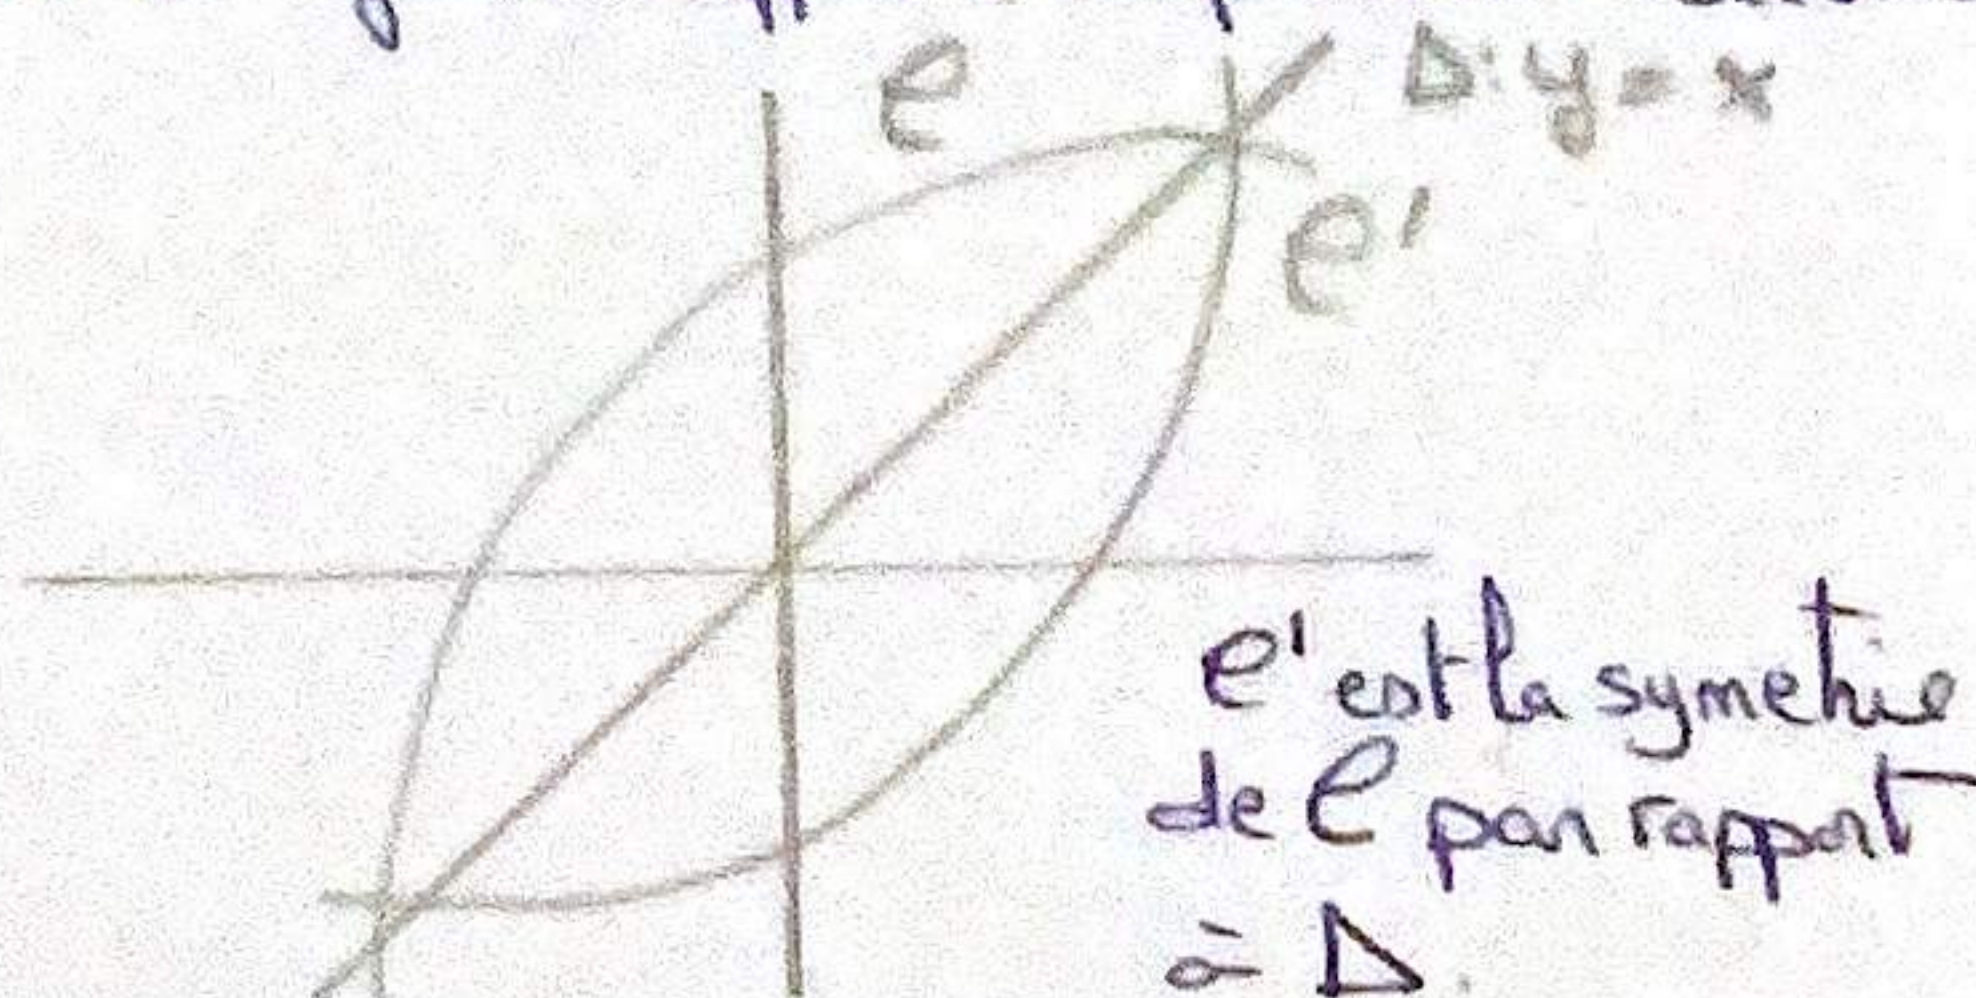 C
Δ: y = x
C'
C' est la symetrie
de C par rapport
à Δ.